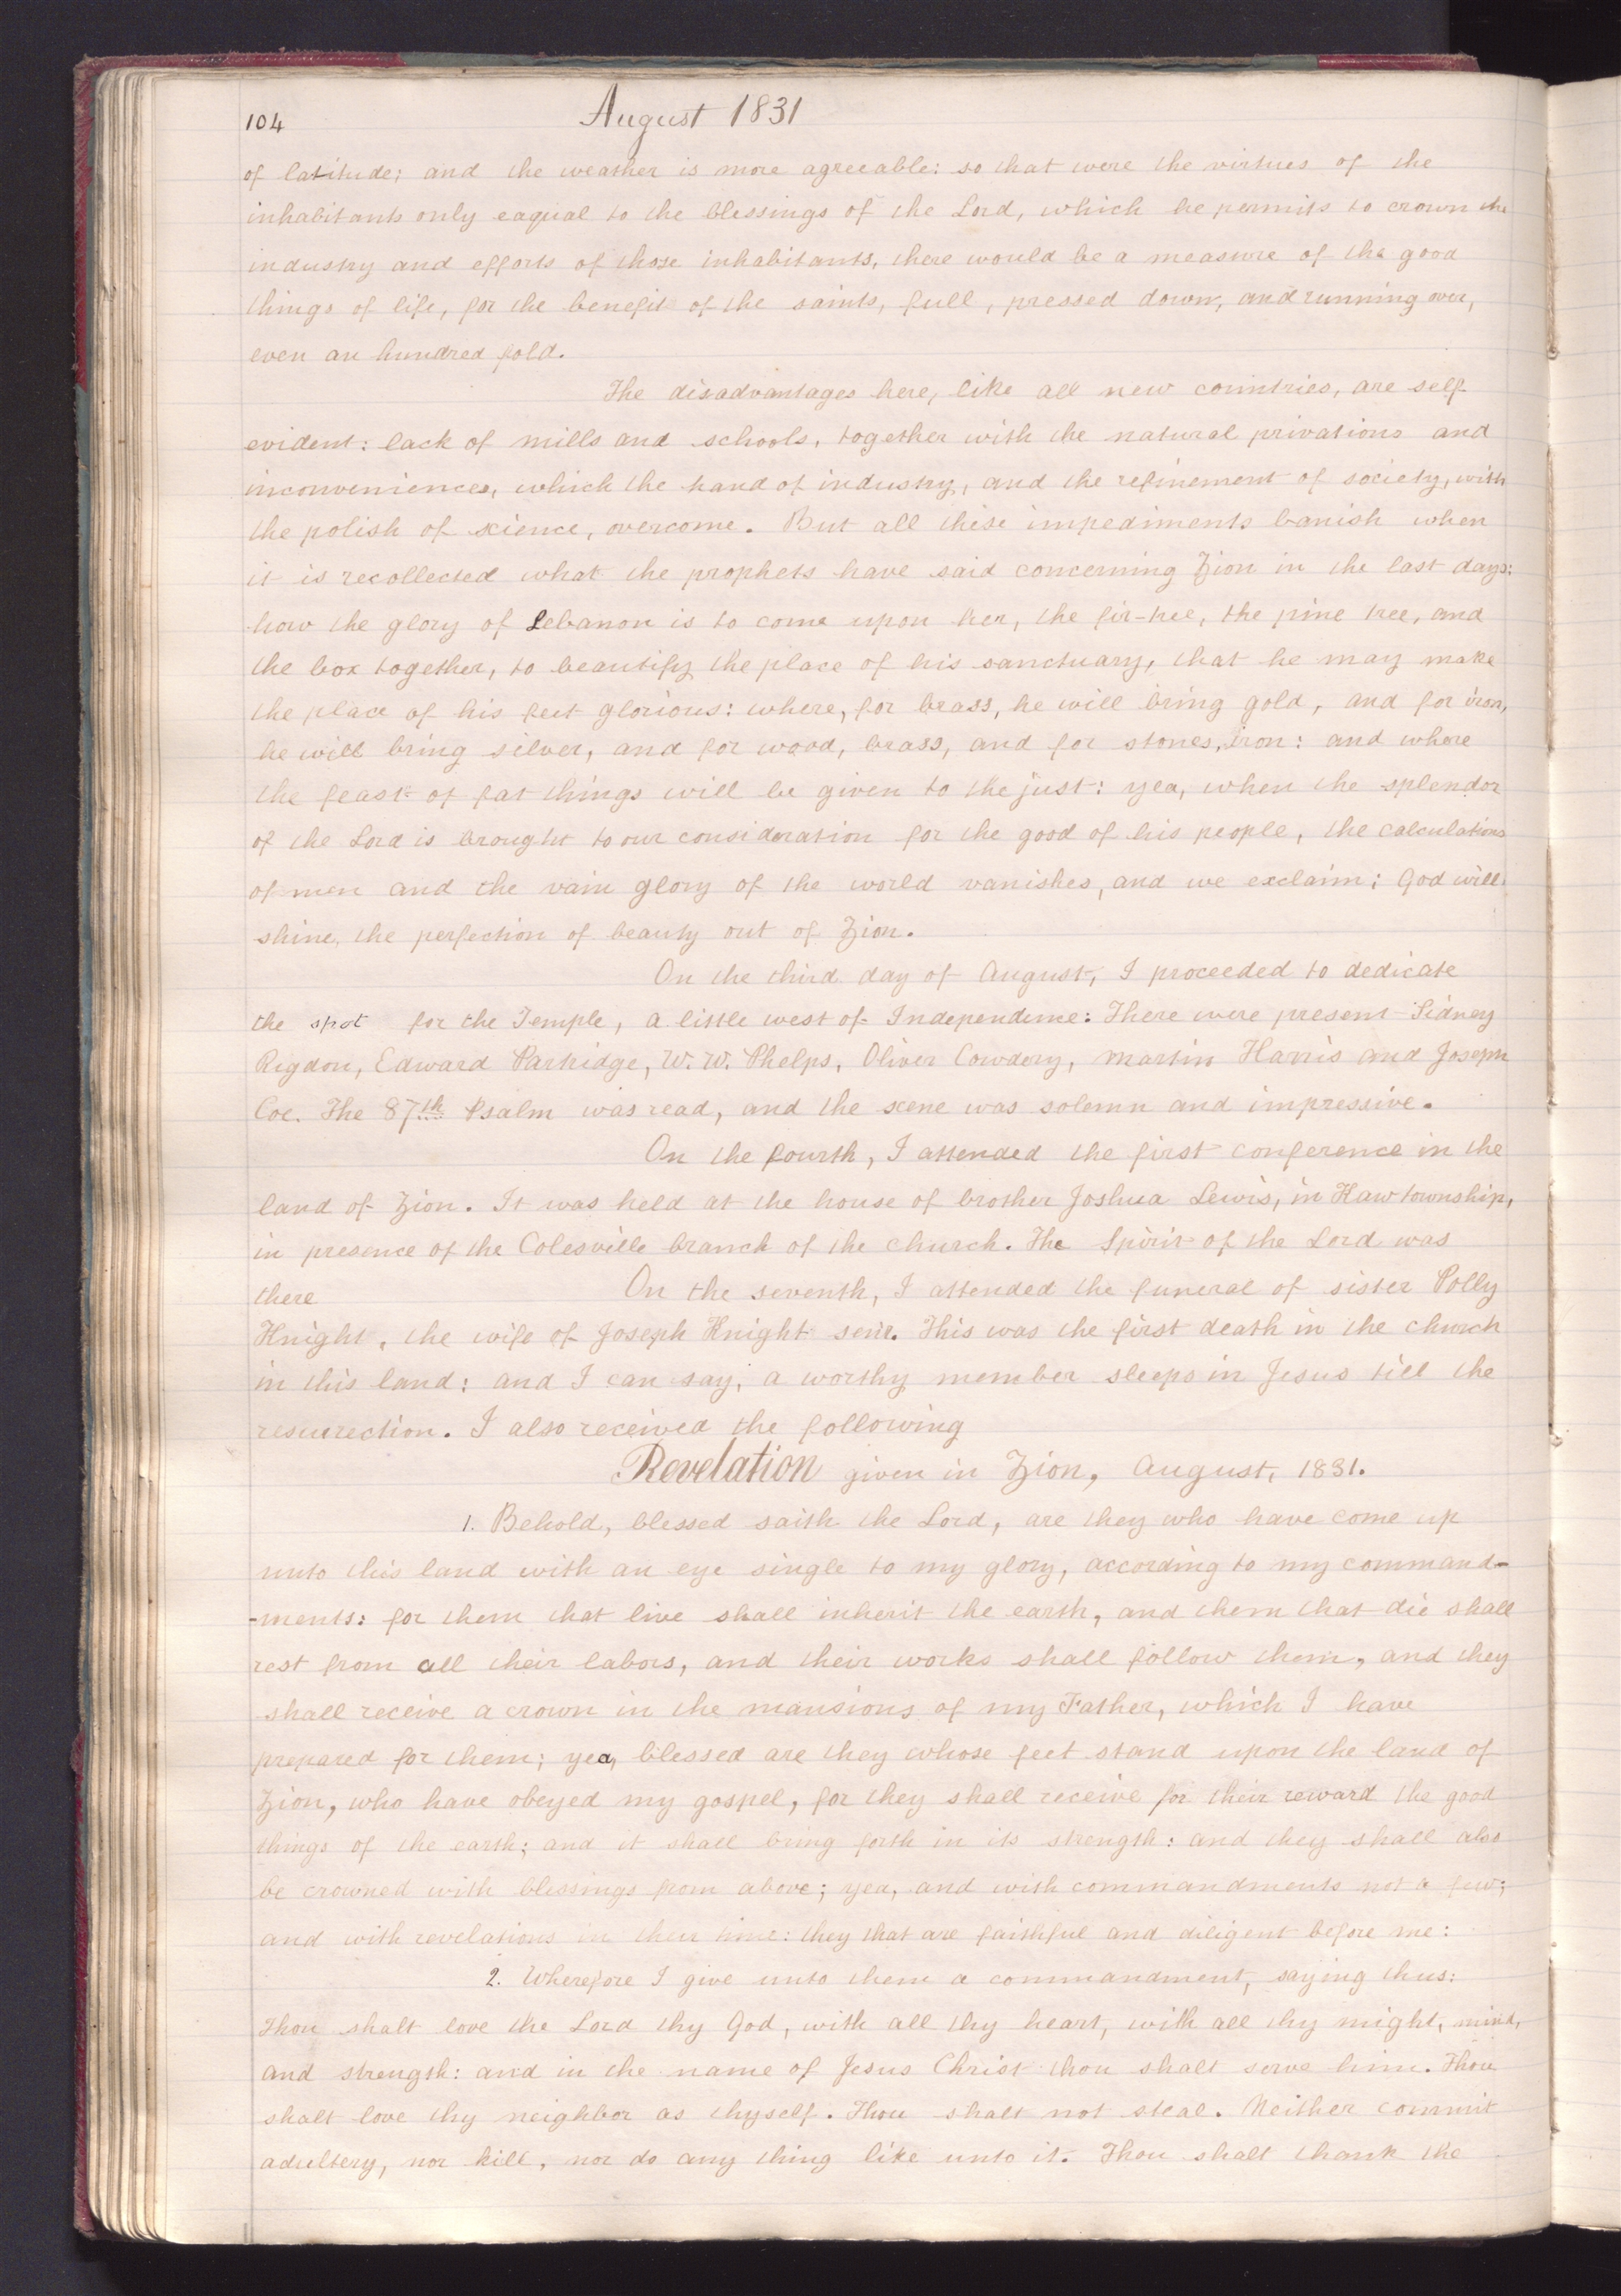 104
August 1831
of latitude; and the weather is more agreeable: so that were the virtues of the
inhabitants only eaqual to the blessings of the Lord, which he permits to crown the
industry and efforts of those inhabitants, there would be a measure of the good
things of life, for the benefit of the saints, full, pressed down, and running over,
even an hundred fold.
The disadvantages here, like all new countries, are self
evident: lack of mills and schools, together with the natural privations and
inconveniences, which the hand of industry, and the refinement of society, with
the polish of science, overcome. But all these impediments banish when
it is recollected what the prophets have said concerning Zion in the last days:
how the glory of Lebanon is to come upon her, the fir-tree, the pine tree, and
the box together, to beautify the place of his sanctuary, that he may make
the place of his feet glorious: where, for brass, he will bring gold, and for iron,
he will bring silver, and for wood, brass, and for stones, iron: and where
the feast of fat things will be given to the just: yea, when the splendor
of the Lord is brought to our consideration for the good of his people, the calculations
of men and the vain glory of the world vanishes, and we exclaim; God will
shine, the perfection of beauty out of Zion.
On the third day of August, I proceeded to dedicate
the spot for the Temple, a little west of Independence: There were present Sidney
Rigdon, Edward Partridge, W. W. Phelps, Oliver Cowdery, Martin Harris and Joseph
Coe. The 87th Psalm was read, and the scene was solemn and impressive.
On the fourth, I attended the first conference in the
land of Zion. It was held at the house of brother Joshua Lewis, in Kaw township,
in presence of the Colesville branch of the church. The Spirit of the Lord was
there On the seventh, I attended the funeral of sister Polly
Knight, the wife of Joseph Knight senr. This was the first death in the church
in this land: and I can say, a worthy member sleeps in Jesus till the
resurrection. I also received the following
Revelation given in Zion, August, 1831.
1. Behold, blessed saith the Lord, are they who have come up
unto this land with an eye single to my glory, according to my command-
-ments: for them that live shall inherit the earth, and them that die shall
rest from all their labors, and their works shall follow them, and they
shall receive a crown in the mansions of my Father, which I have
prepared for them; yea, blessed are they whose feet stand upon the land of
Zion, who have obeyed my gospel, for they shall receive for their reward the good
things of the earth; and it shall bring forth in its strength: and they shall also
be crowned with blessings from above; yea, and with commandments not a few;
and with revelations in their time: they that are faithful and diligent before me:
2. Wherefore I give unto them a commandment, saying thus:
Thou shalt love the Lord thy God, with all thy heart, with all thy might, mind,
and strength: and in the name of Jesus Christ thou shalt serve him. Thou
shalt love thy neighbor as thyself. Thou shalt not steal. Neither commit
adultery, nor kill, nor do any thing like unto it. Thou shalt thank the